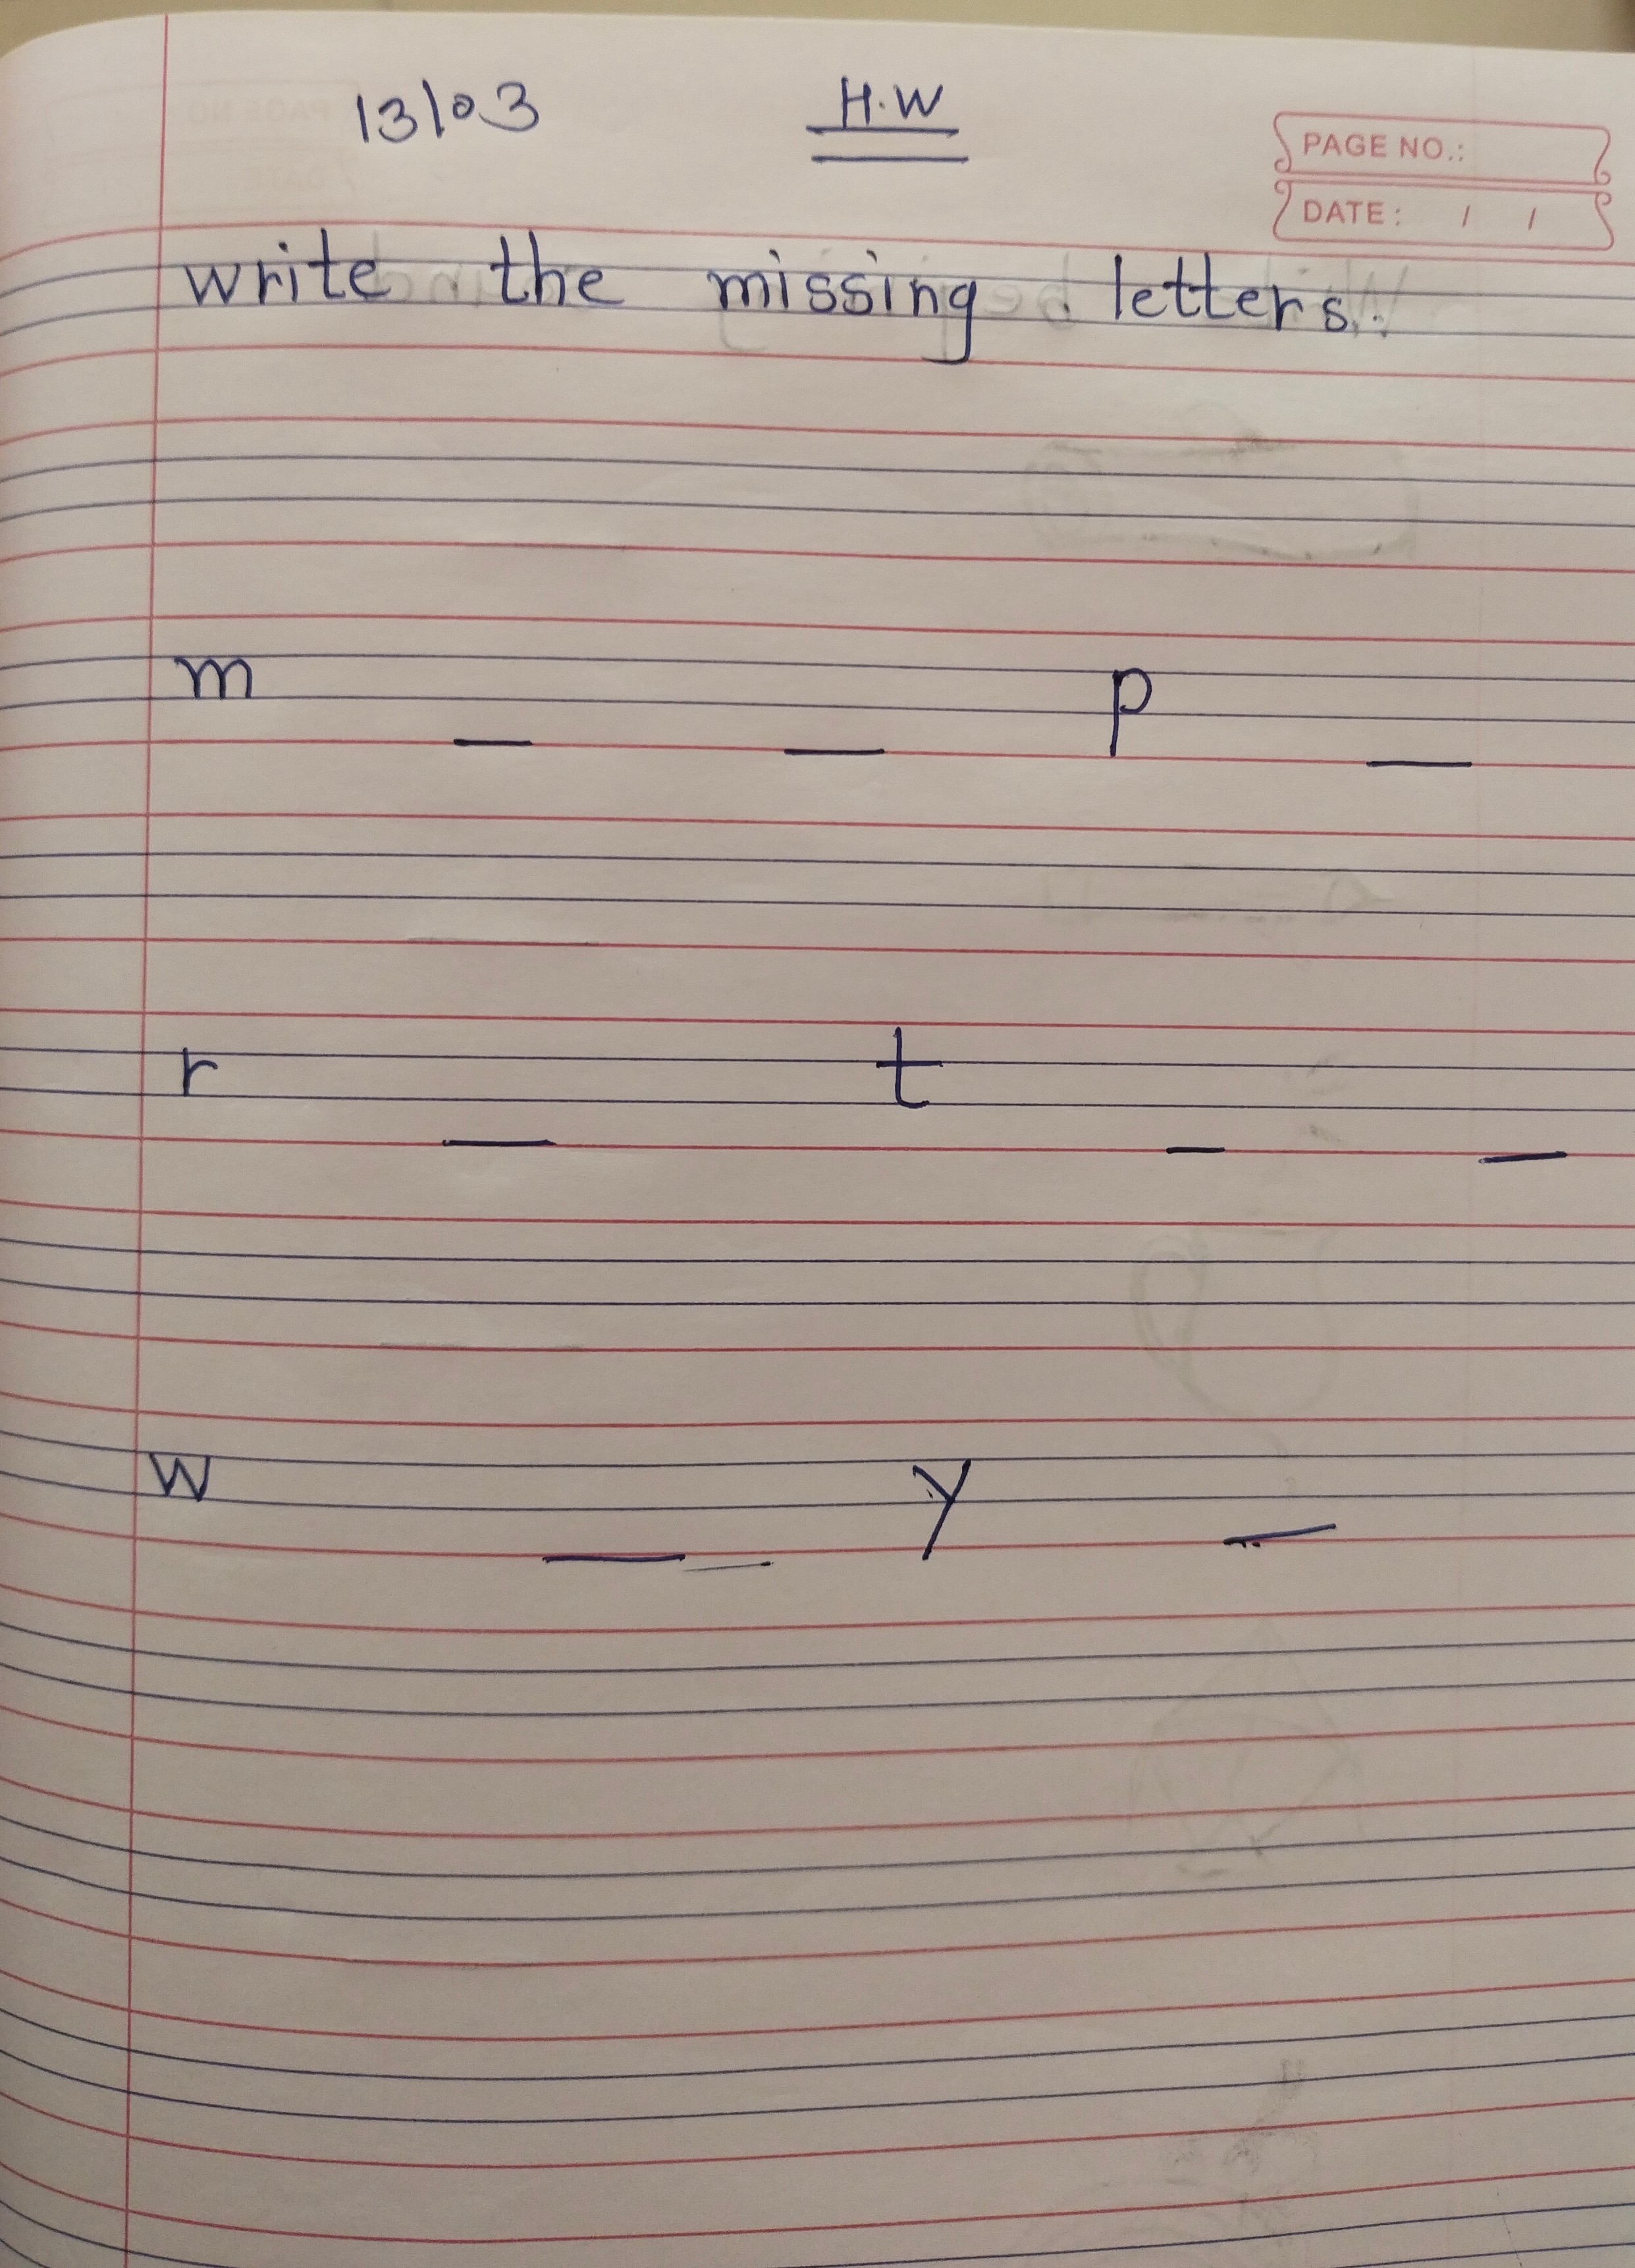 13/03 H.W
PAGE NO.:
DATE: / /
write the missing letters.
m _ _ p _
r _ t _ _
w _ _ y _